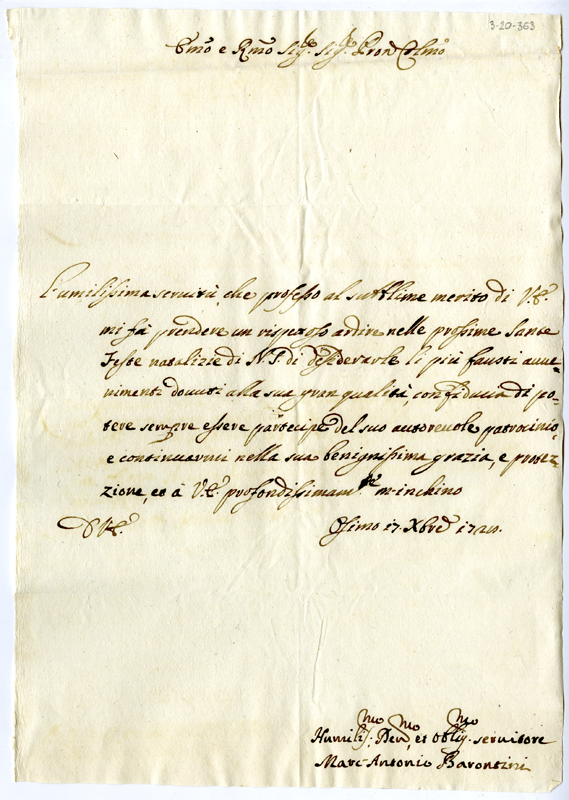 3-20-363
Emo e Rmo Sigre Sigre Pron Colmo
L'umilissima servitù che professo al sublime merito di V.E.
mi fà prendere un rispetoso ardire nelle prossime Sante
Feste natalizie di N.S. di desiderarle li più fausti avve-
nimenti dovuti alla sua gran qualità, con fiducia di po-
tere sempre essere partecipe del suo autorevole patrocinio,
e continuarmi nella sua benignissima grazia, e protez-
zione, et à V.E. profondissimamte m'inchino
D V.E.
Osimo 17. Xbre
Humilissmo, Devmo, et Obligmo servitore
Marc-Antonio Barontini